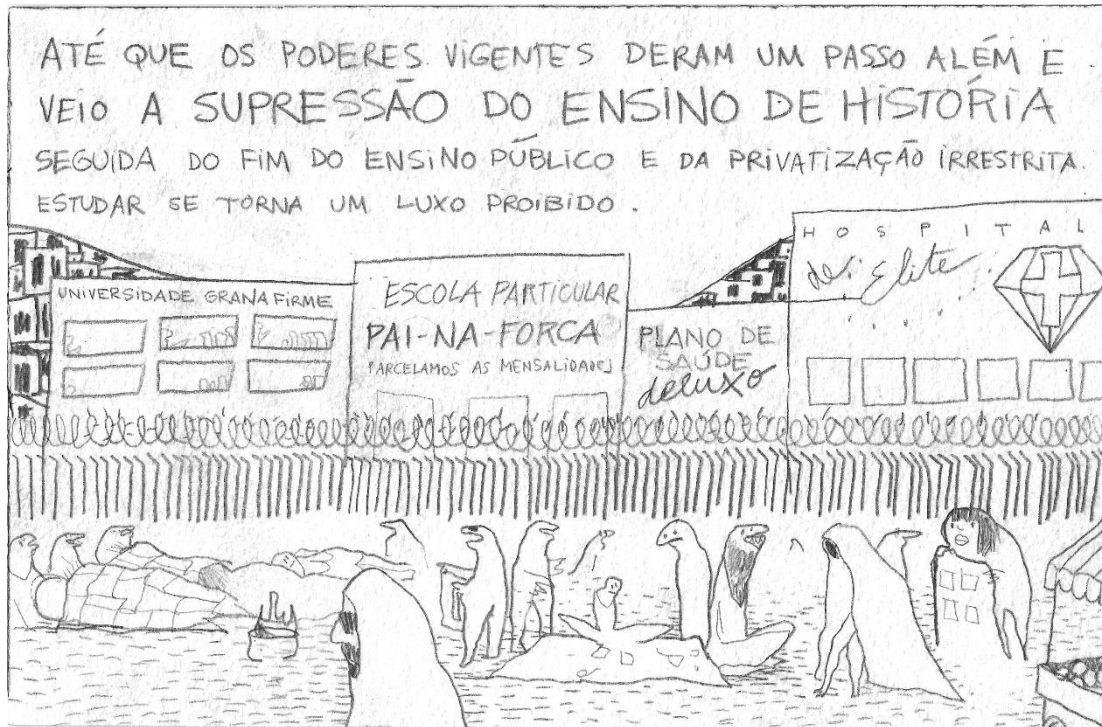 ATÉ QUE OS PODERES VIGENTES DERAM UM PASSO ALÉM E
VEIO A SUPRESSÃO DO ENSINO DE HISTÓRIA
SEGUIDA DO FIM DO ENSINO PÚBLICO E DA PRIVATIZAÇÃO IRRESTRITA.
ESTUDAR SE TORNA UM LUXO PROIBIDO.
UNIVERSIDADE GRANA FIRME
ESCOLA PARTICULAR
PAI-NA-FORCA
PARCELAMOS AS MENSALIDADES
PLANO DE
SAÚDE
deluxo
HOSPITAL
de Elite